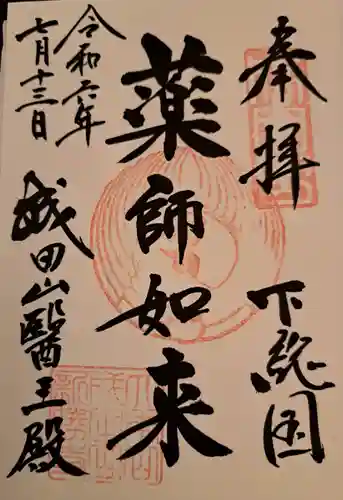 奉拝
下総国
薬師如来
成田山醫王殿
令和六年
七月十三日